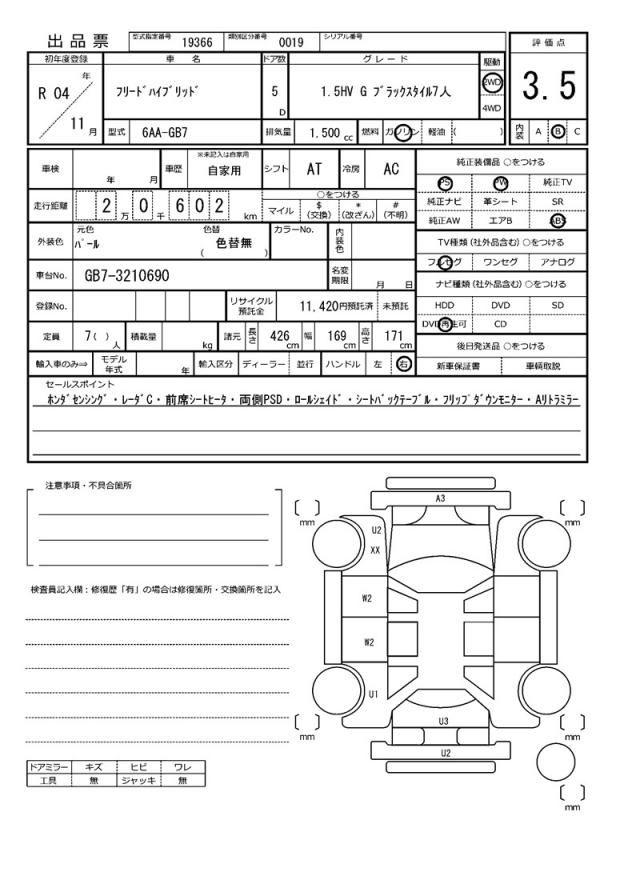 出品票 型式指定番号 19366 類別区分番号 0019 シリアル番号
初年度登録 車名 ドア数 グレード 駆動 評価点
R 04 年 11 月 フリードハイブリッド 5 D 1.5HV G ブラックスタイル7人 2WD 4WD 3.5
型式 6AA-GB7 排気量 1.500 cc 燃料 ガソリン 軽油 ( ) 内装 A B C
車検 年 月 車歴 ※未記入は自家用 自家用 シフト AT 冷房 AC 純正装備品 ○をつける
PS PW 純正TV
走行距離 2 万 0 千 6 0 2 km ○をつける
マイル $(交換) *(改ざん) #(不明)
純正ナビ 革シート SR
純正AW エアB ABS
外装色 元色 パール 色替 色替無 ( ) カラーNo. 内装色
TV種類 (社外品含む) ○をつける
フルセグ ワンセグ アナログ
車台No. GB7-3210690 名変期限 月 日
ナビ種類 (社外品含む) ○をつける
登録No. リサイクル預託金 11,420円預託済 未預託
HDD DVD SD
DVD再生可 CD
定員 7( ) 人 積載量 kg 諸元 長さ 426 cm 幅 169 cm 高さ 171 cm
後日発送品 ○をつける
輸入車のみ⇒ モデル年式 年 輸入区分 ディーラー 並行 ハンドル 左 右
新車保証書 車輌取説
セールスポイント
ホンダセンシング・レーダC・前席シートヒータ・両側PSD・ロールシェイド・シートバックテーブル・フリップダウンモニター・Aリトラミラー
注意事項・不具合箇所
検査員記入欄：修復歴「有」の場合は修復箇所・交換箇所を記入
A3
mm
mm
U2
XX
W2
W2
U1
U3
mm
mm
U2
mm
ドアミラー キズ ヒビ ワレ
工具 無 ジャッキ 無